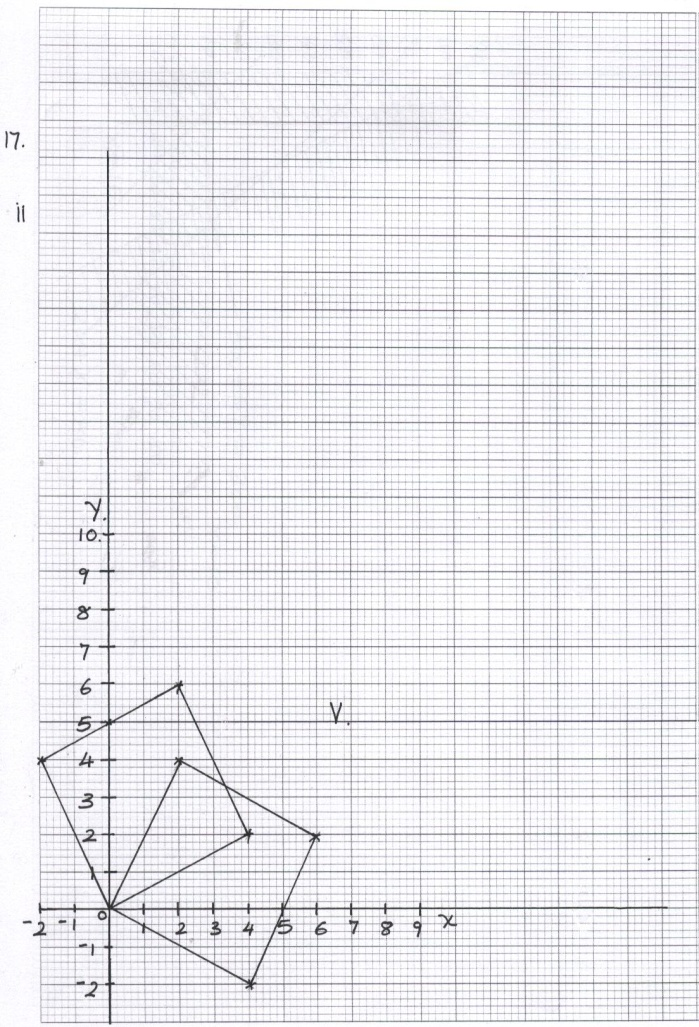 17.
ii
y.
10.
9
8
7
6
V.
5
4
3
2
1
-2 -1 0 1 2 3 4 5 6 7 8 9 x
-1
-2